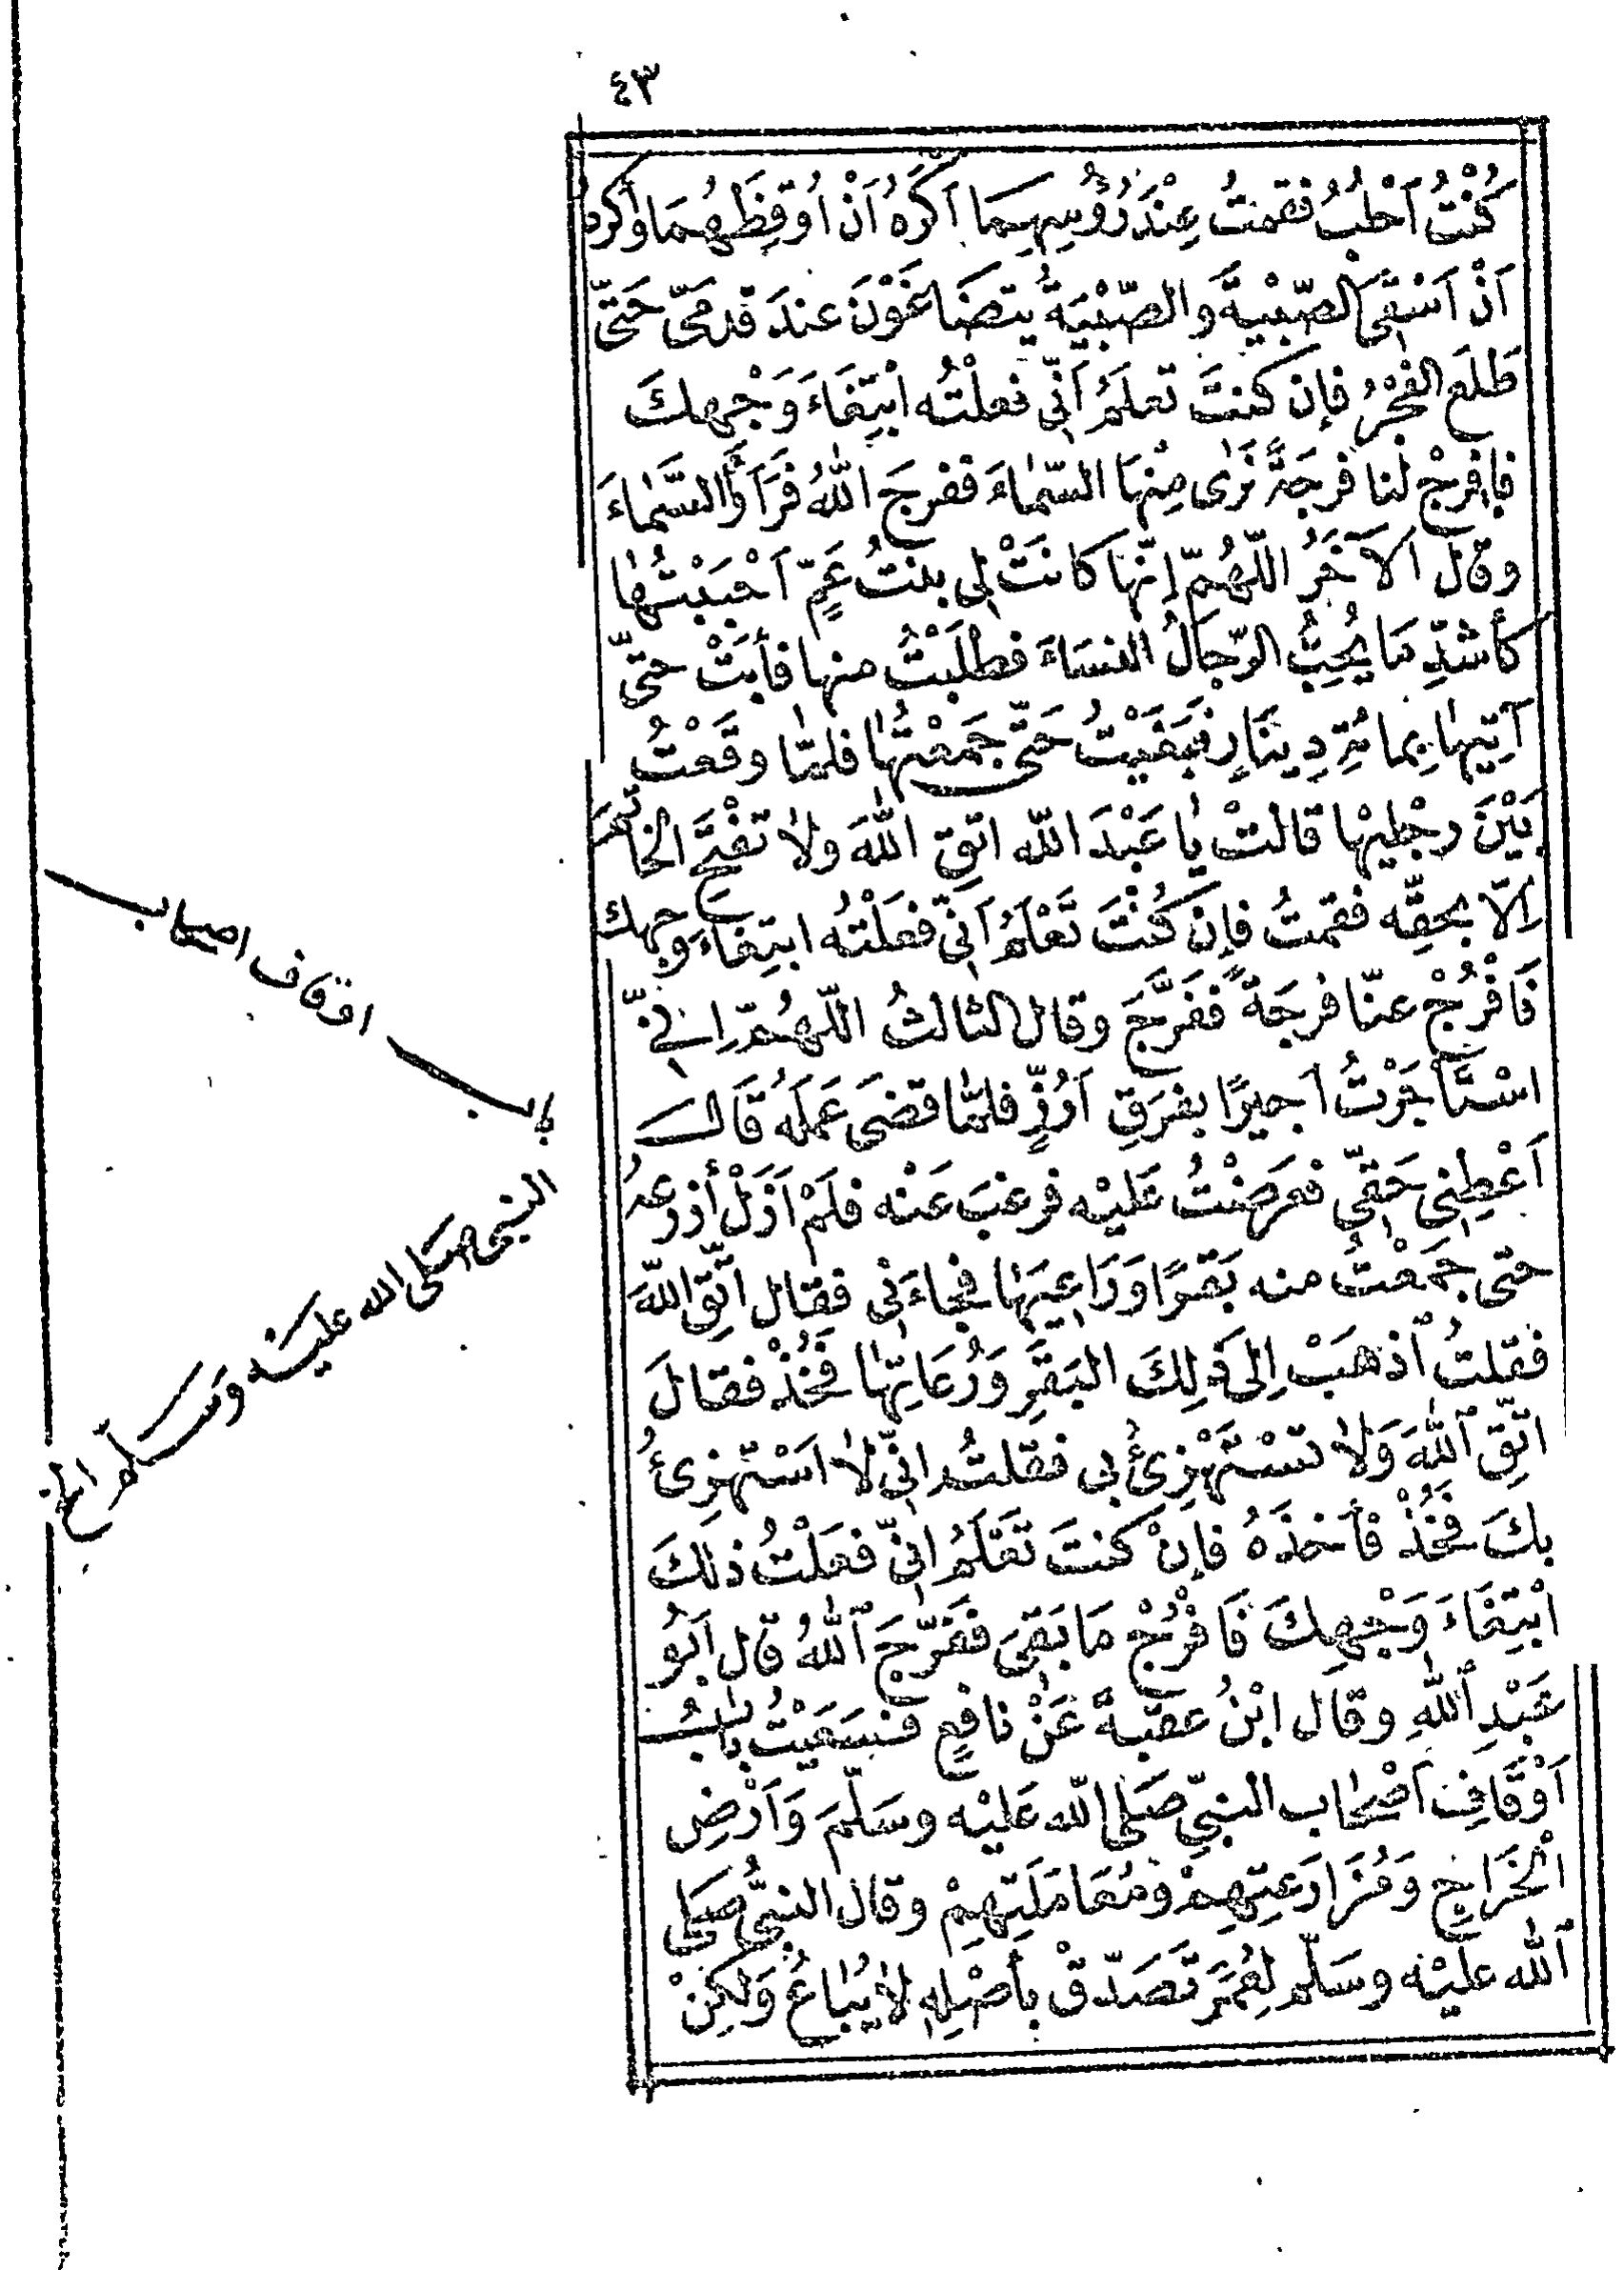 ٤٣
كُنْتُ اَحْلُبُ فقمتُ عِنْدَ رُؤُسِهِمَا اَكْرَهُ اَنْ اُوقِظَهُمَا وَأكره
اَنْ اَسْقِيَ الصِّبْيَةَ وَالصِّبْيَةُ يتضَاغَوْنَ عندَ قدمَيَّ حَتّىٰ
طَلَعَ الفَجْرُ فإن كنتَ تعلَمُ اَنّي فعلْتُه ابْتِغَاءَ وَجْهِكَ
فافرُجْ لنا فرجَةً نَرٰى مِنْهَا السّمٰاءَ ففرجَ اللّٰهُ فَرَأَوُا السَّمٰاءَ
وقال الآخَرُ اللّهُمّ اِنّهَا كانَتْ لِي بنتُ عَمٍّ اَحْبَبْتُهٰا
كأشدِّ مَا يُحِبُّ الرّجَالُ النسَاءَ فطلَبْتُ منها فأبَتْ حتىّ
آتِيَهٰا بِمائةِ دِينَارٍ فبَغَيْتُ حَتّى جَمَعْتُهٰا فلمّا وقَعْتُ
بَيْنَ رجْلَيْهٰا قالتْ يٰا عَبْدَ اللّه اتّقِ اللّٰهَ ولاٰ تفْتَحِ الخاتمَ
اِلاّ بحقِّه فقمتُ فإنْ كُنْتَ تَعْلَمُ اَنّي فعَلْتُه ابتِغَاءَ وَجهِك
فَافْرُجْ عنّا فرجَةً ففَرَّجَ وقال الثالثُ اللّهُمّ اِنّي
اسْتَأجَرْتُ اَجيرًا بفرَقِ اَرُزٍّ فلمّا قضَى عَمَلَهُ قَالَ
اَعْطِنِي حَقّي فعرَضْتُ عَليْه فرغبَ عَنْه فلَمْ اَزَلْ أزرعهُ
حتى جَمَعْتُ منه بَقَرًا وَرَاعِيَهٰا فجاءَنِي فقال اتّقِ اللّهَ
فقلتُ ٱذهَبْ اِلى ذٰلِكَ البَقَرِ وَرُعَاتِهٰا فَخُذْ فقالَ
اتّقِ ٱللّٰهَ وَلاٰ تسْتَهْزِئْ بي فقلتُ اِنّي لاٰ اَسْتَهزِئُ
بكَ فَخُذْ فأخذَهُ فإنْ كنتَ تَعْلَمُ اَنّي فعَلْتُ ذٰلكَ
ابْتِغَاءَ وَجْهِكَ فَافْرُجْ مَا بَقِيَ ففَرّجَ ٱللّٰهُ قال اَبُو
عَبْدِ ٱللّٰهِ وقال ابْنُ عقبةَ عَنْ نافعٍ فسَعَيْتُ بٰابُ
اَوْقَافِ اَصْحٰابِ النبِيِّ صَلى اللّه عَليْه وسَلّمَ وَاَرْضِ
الْخَرَاجِ وَمُزَارَعَتِهِمْ ومُعَامَلَتِهِمْ وقال النبيُّ صَلى
ٱللّٰه عليْه وسَلّم لِعُمَرَ تَصَدّقْ بأصْلِهِ لاٰ يُبَاعُ وَلٰكِنْ
باب اوقاف اصحاب
النبي صلى الله عليه وسلم الخ